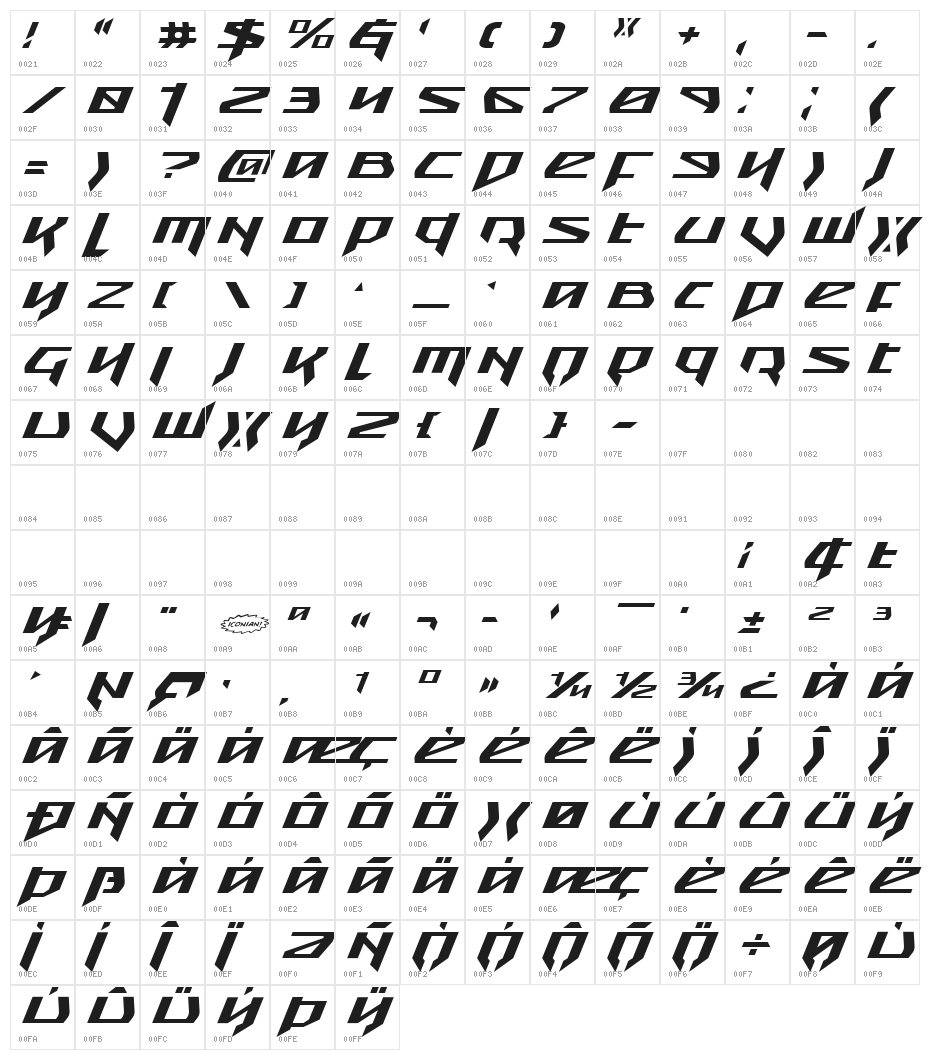 ! " # $ % & ' ( ) * + , - .
0021 0022 0023 0024 0025 0026 0027 0028 0029 002A 002B 002C 002D 002E
/ 0 1 2 3 4 5 6 7 8 9 : ; <
002F 0030 0031 0032 0033 0034 0035 0036 0037 0038 0039 003A 003B 003C
= > ? @ A B C D E F G H I J
003D 003E 003F 0040 0041 0042 0043 0044 0045 0046 0047 0048 0049 004A
K L M N O P Q R S T U V W X
004B 004C 004D 004E 004F 0050 0051 0052 0053 0054 0055 0056 0057 0058
Y Z [ \ ] ^ _ ` a b c d e f
0059 005A 005B 005C 005D 005E 005F 0060 0061 0062 0063 0064 0065 0066
g h i j k l m n o p q r s t
0067 0068 0069 006A 006B 006C 006D 006E 006F 0070 0071 0072 0073 0074
u v w x y z { | } ~
0075 0076 0077 0078 0079 007A 007B 007C 007D 007E 007F 0080 0082 0083
0084 0085 0086 0087 0088 0089 008A 008B 008C 008E 0091 0092 0093 0094
¡ ¢ £
0095 0096 0097 0098 0099 009A 009B 009C 009E 009F 00A0 00A1 00A2 00A3
¥ ¦ ¨ ICONIAN! ª « ¬ - ' ¯ ° ± ² ³
00A5 00A6 00A8 00A9 00AA 00AB 00AC 00AD 00AE 00AF 00B0 00B1 00B2 00B3
´ µ ¶ · ¸ ¹ º » ¼ ½ ¾ ¿ À Á
00B4 00B5 00B6 00B7 00B8 00B9 00BA 00BB 00BC 00BD 00BE 00BF 00C0 00C1
Â Ã Ä Å Æ Ç È É Ê Ë Ì Í Î Ï
00C2 00C3 00C4 00C5 00C6 00C7 00C8 00C9 00CA 00CB 00CC 00CD 00CE 00CF
Ð Ñ Ò Ó Ô Õ Ö × Ø Ù Ú Û Ü Ý
00D0 00D1 00D2 00D3 00D4 00D5 00D6 00D7 00D8 00D9 00DA 00DB 00DC 00DD
Þ ß à á â ã ä å æ ç è é ê ë
00DE 00DF 00E0 00E1 00E2 00E3 00E4 00E5 00E6 00E7 00E8 00E9 00EA 00EB
ì í î ï ð ñ ò ó ô õ ö ÷ ø ù
00EC 00ED 00EE 00EF 00F0 00F1 00F2 00F3 00F4 00F5 00F6 00F7 00F8 00F9
ú û ü ý þ ÿ
00FA 00FB 00FC 00FD 00FE 00FF